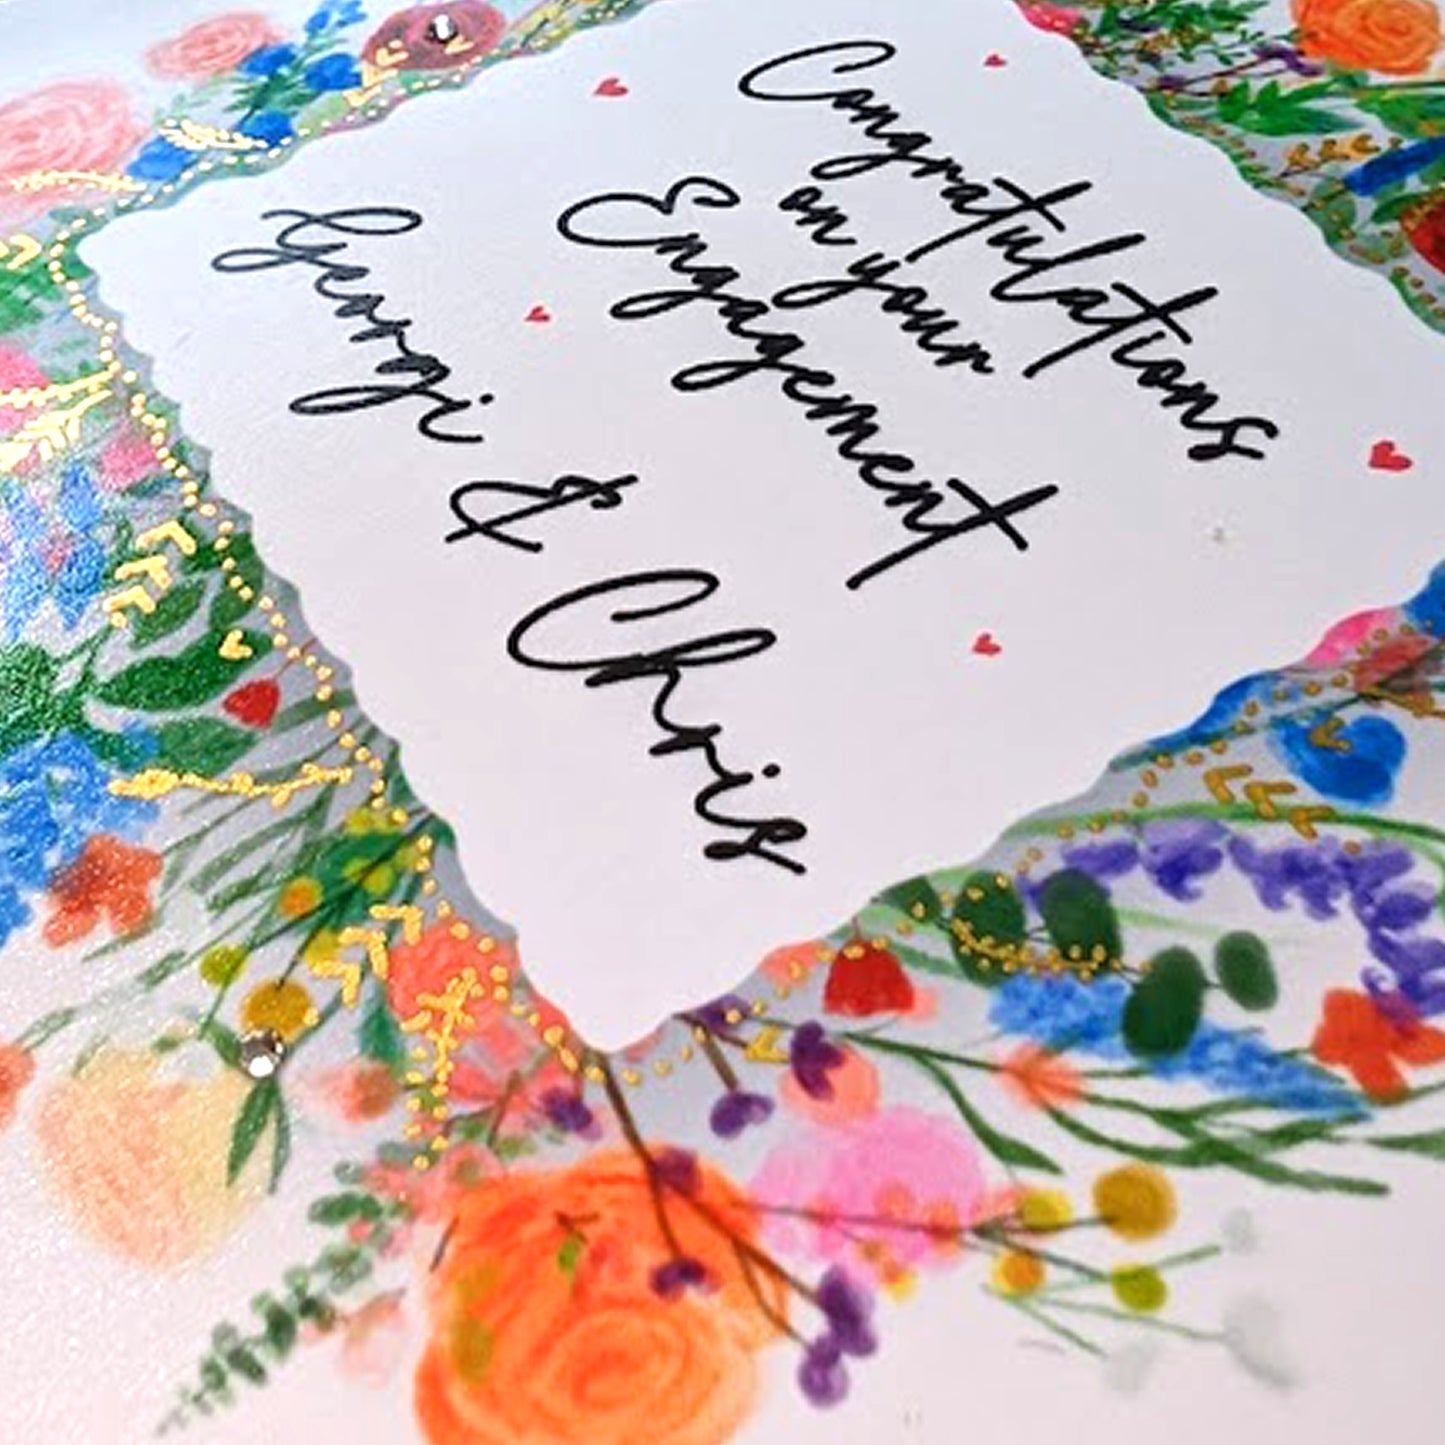 Congratulations
on your
Engagement
Georgi & Chris